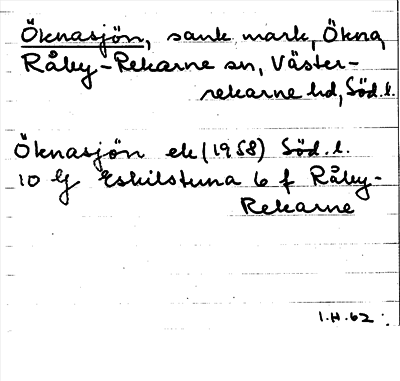 Öknasjön, sank mark, Ökna,
Råby-Rekarne sn, Väster-
rekarne hd, Söd.l.
Öknasjön ek (1958) Söd.l.
10 Ej Eskilstuna 6 f Råby-
Rekarne
I.H.62.